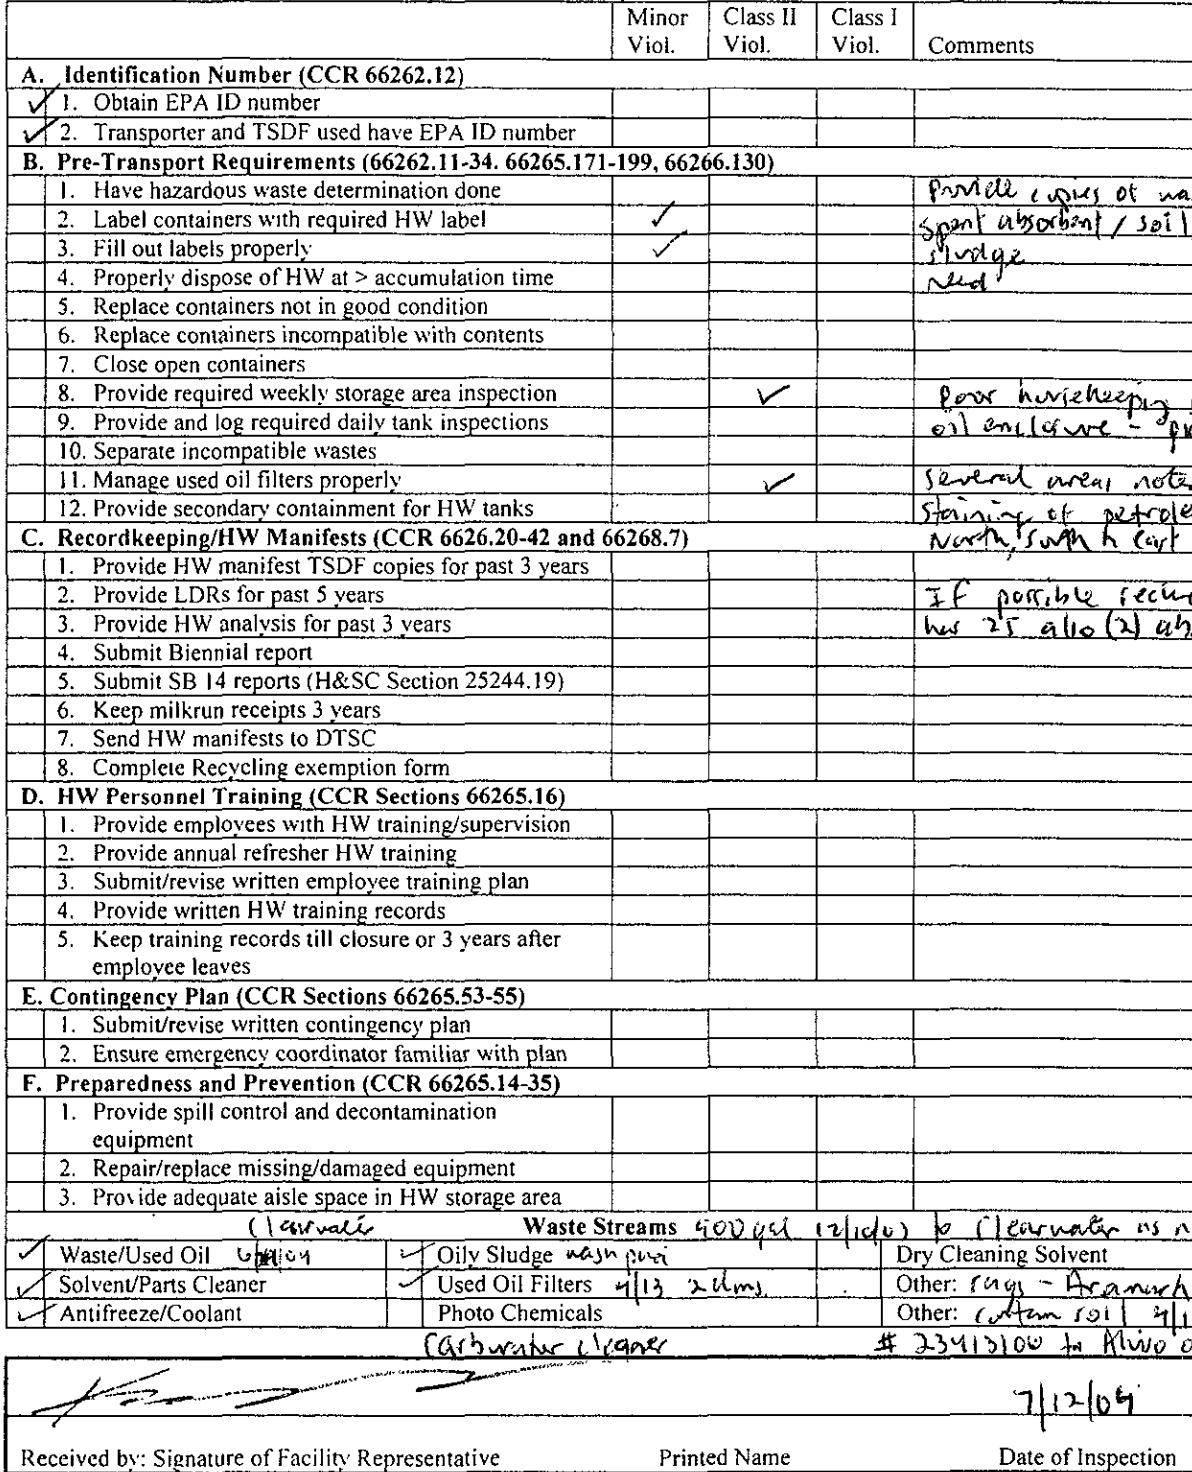 Minor Class II Class I
Viol. Viol. Viol. Comments
A. Identification Number (CCR 66262.12)
✓ 1. Obtain EPA ID number
✓ 2. Transporter and TSDF used have EPA ID number
B. Pre-Transport Requirements (66262.11-34. 66265.171-199, 66266.130)
1. Have hazardous waste determination done Provide copies of
2. Label containers with required HW label ✓ spent absorbent / soil
3. Fill out labels properly ✓ sludge
4. Properly dispose of HW at > accumulation time Need
5. Replace containers not in good condition
6. Replace containers incompatible with contents
7. Close open containers
8. Provide required weekly storage area inspection ✓ Poor housekeeping
9. Provide and log required daily tank inspections oil enclosure -
10. Separate incompatible wastes
11. Manage used oil filters properly ✓ Several areas
12. Provide secondary containment for HW tanks Staining of
C. Recordkeeping/HW Manifests (CCR 6626.20-42 and 66268.7) North, South
1. Provide HW manifest TSDF copies for past 3 years
2. Provide LDRs for past 5 years If possible
3. Provide HW analysis for past 3 years has 25
4. Submit Biennial report
5. Submit SB 14 reports (H&SC Section 25244.19)
6. Keep milkrun receipts 3 years
7. Send HW manifests to DTSC
8. Complete Recycling exemption form
D. HW Personnel Training (CCR Sections 66265.16)
1. Provide employees with HW training/supervision
2. Provide annual refresher HW training
3. Submit/revise written employee training plan
4. Provide written HW training records
5. Keep training records till closure or 3 years after
employee leaves
E. Contingency Plan (CCR Sections 66265.53-55)
1. Submit/revise written contingency plan
2. Ensure emergency coordinator familiar with plan
F. Preparedness and Prevention (CCR 66265.14-35)
1. Provide spill control and decontamination
equipment
2. Repair/replace missing/damaged equipment
3. Provide adequate aisle space in HW storage area
Clearwater Waste Streams to Clearwater as
✓ Waste/Used Oil ✓ Oily Sludge wash Dry Cleaning Solvent
✓ Solvent/Parts Cleaner ✓ Used Oil Filters 4/13 2 dms Other: rags - Aramark
✓ Antifreeze/Coolant Photo Chemicals Other: contam soil
Carburator cleaner # 23413100 to
7/12/04
Received by: Signature of Facility Representative Printed Name Date of Inspection